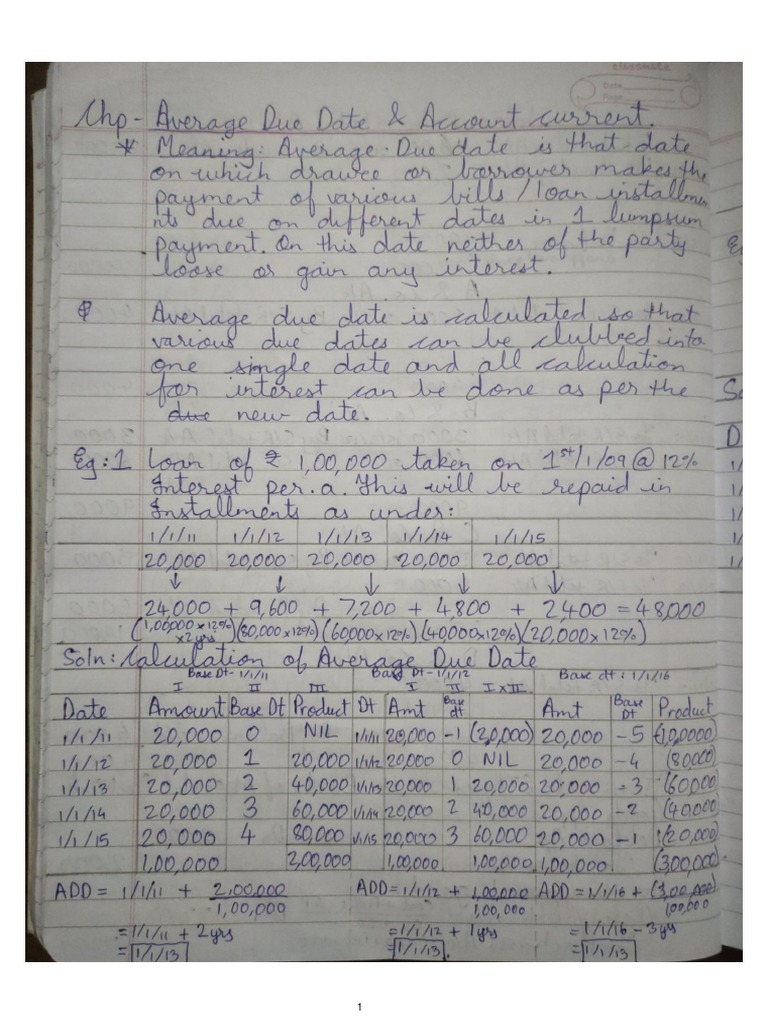 classmate
Date
Page
Chp - Average Due Date & Account current.
* Meaning: Average Due date is that date
on which drawee or borrower makes the
payment of various bills/loan installme
nts due on different dates in 1 lumpsum
payment. On this date neither of the party
loose or gain any interest.
Average due date is calculated so that
various due dates can be clubbed into
one single date and all calculation
for interest can be done as per the
due new date.
Eg:1 Loan of ₹ 1,00,000 taken on 1st/1/09 @ 12%
Interest per.a. This will be repaid in
Installments as under:
1/1/11 1/1/12 1/1/13 1/1/14 1/1/15
20,000 20,000 20,000 20,000 20,000
↓ ↓ ↓ ↓ ↓
24,000 + 9,600 + 7,200 + 4,800 + 2,400 = 48,000
(1,00,000 x 12% x 2yrs) (80,000 x 12%) (60,000 x 12%) (40,000 x 12%) (20,000 x 12%)
Soln: Calculation of Average Due Date
Base Dt - 1/1/11 Base Dt - 1/1/12 Base dt : 1/1/16
I II III I II I x II
Date Amount Base Dt Product Dt Amt Base dt Amt Base Dt Product
1/1/11 20,000 0 NIL 1/1/11 20,000 -1 (20,000) 20,000 -5 (1,00,000)
1/1/12 20,000 1 20,000 1/1/12 20,000 0 NIL 20,000 -4 (80,000)
1/1/13 20,000 2 40,000 1/1/13 20,000 1 20,000 20,000 -3 (60,000)
1/1/14 20,000 3 60,000 1/1/14 20,000 2 40,000 20,000 -2 (40,000)
1/1/15 20,000 4 80,000 1/1/15 20,000 3 60,000 20,000 -1 (20,000)
1,00,000 2,00,000 1,00,000 1,00,000 1,00,000 (3,00,000)
ADD = 1/1/11 + 2,00,000 ADD = 1/1/12 + 1,00,000 ADD = 1/1/16 + (3,00,000)
1,00,000 1,00,000 1,00,000
= 1/1/11 + 2yrs = 1/1/12 + 1yrs = 1/1/16 - 3yrs
= 1/1/13 = 1/1/13. = 1/1/13
1